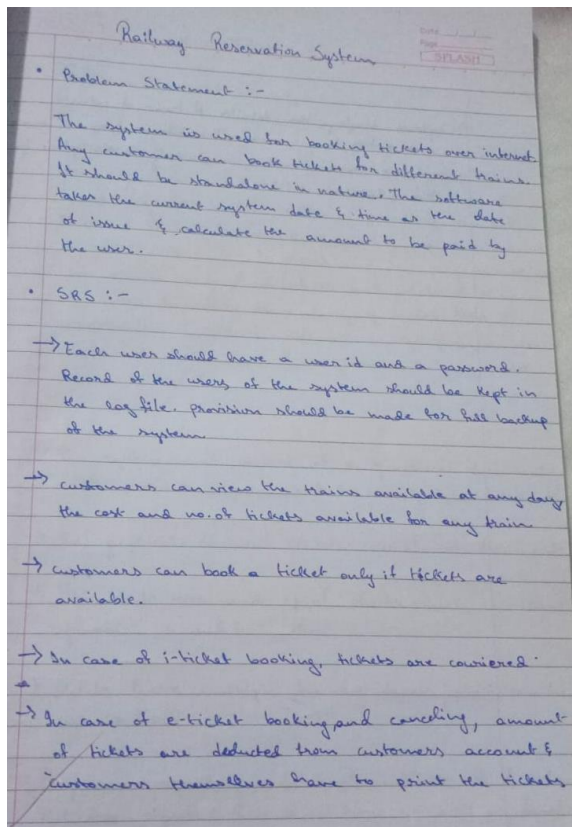 Date
Page
SPLASH
Railway Reservation System
• Problem Statement :-
The system is used for booking tickets over internet.
Any customer can book tickets for different trains.
It should be standalone in nature. The software
takes the current system date & time as the date
of issue & calculate the amount to be paid by
the user.
• SRS :-
→ Each user should have a user id and a password.
Record of the users of the system should be kept in
the log file. provision should be made for full backup
of the system
→ customers can view the trains available at any day,
the cost and no. of tickets available for any train
→ customers can book a ticket only if tickets are
available.
→ In case of i-ticket booking, tickets are couriered.
→ In case of e-ticket booking and canceling, amount
of tickets are deducted from customers account &
customers themselves have to print the tickets